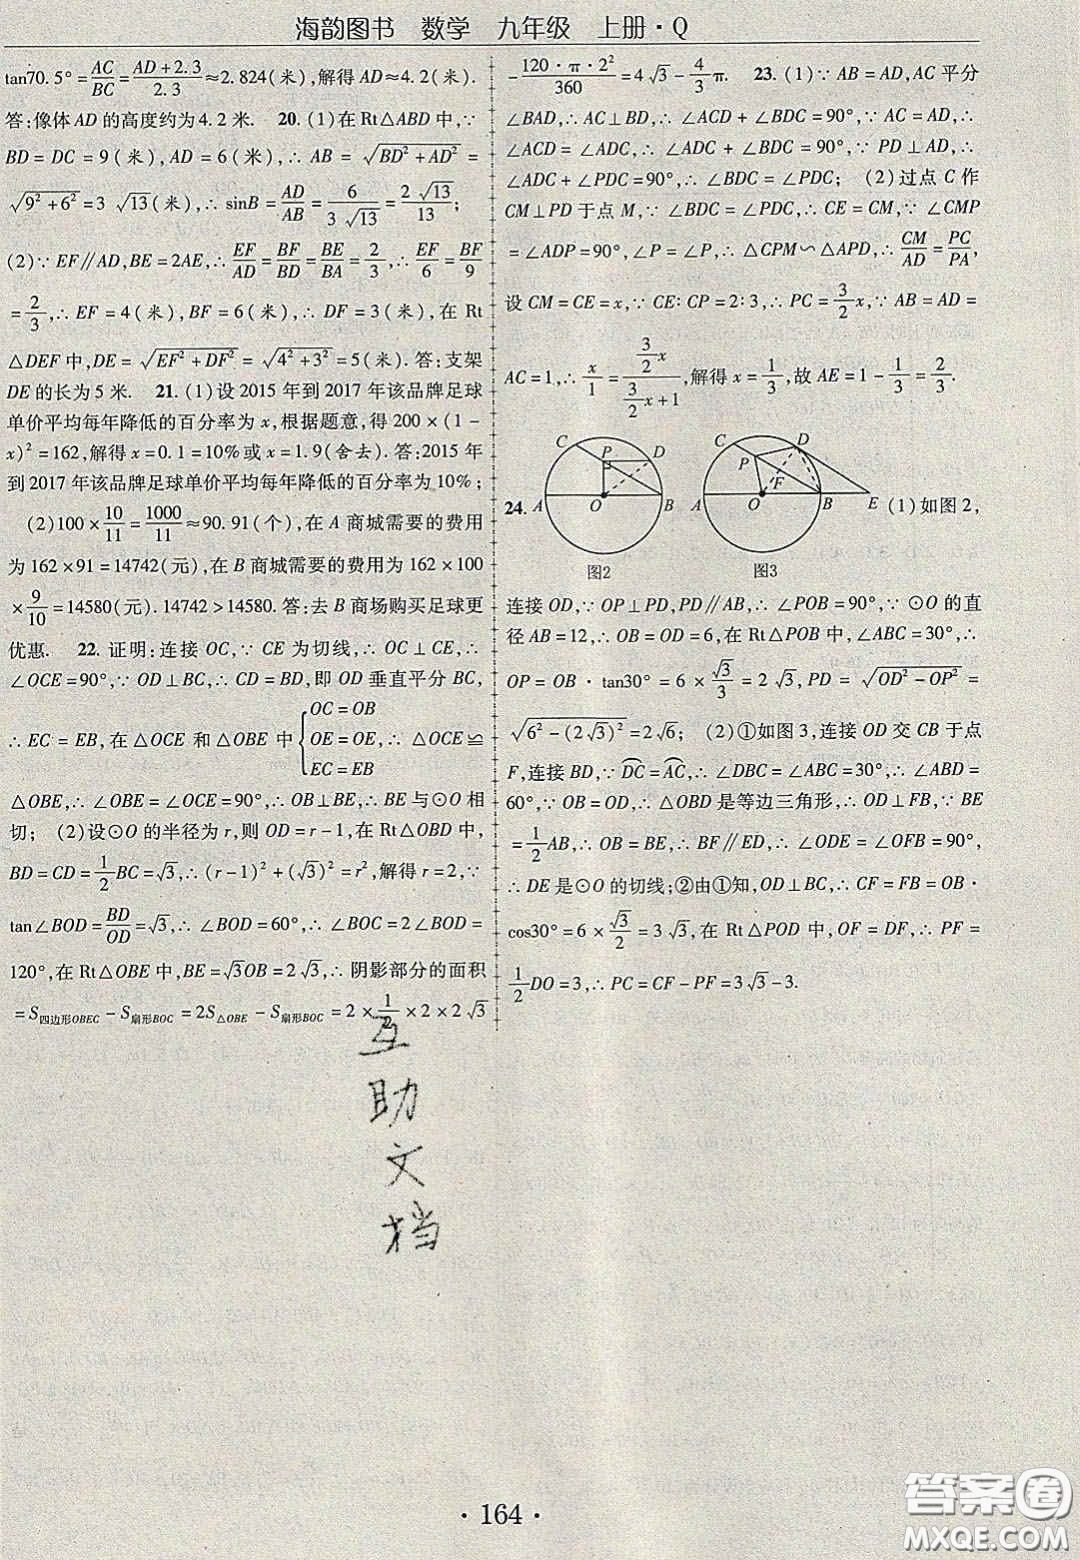 海韵图书 数学 九年级 上册·Q
tan70.5°=AC/BC=(AD+2.3)/2.3≈2.824(米),解得AD≈4.2(米).
答:像体AD的高度约为4.2米. 20.(1)在Rt△ABD中,∵
BD=DC=9(米),AD=6(米),∴AB=√(BD²+AD²)=
√(9²+6²)=3√13(米),∴sinB=AD/AB=6/(3√13)=2√13/13;
(2)∵EF∥AD,BE=2AE,∴EF/AD=BF/BD=BE/BA=2/3,∴EF/6=BF/9
=2/3,∴EF=4(米),BF=6(米),∴DF=3(米),在Rt
△DEF中,DE=√(EF²+DF²)=√(4²+3²)=5(米).答:支架
DE的长为5米. 21.(1)设2015年到2017年该品牌足球
单价平均每年降低的百分率为x,根据题意,得200×(1-
x)²=162,解得x=0.1=10%或x=1.9(舍去).答:2015年
到2017年该品牌足球单价平均每年降低的百分率为10%;
(2)100×10/11=1000/11≈90.91(个),在A商城需要的费用
为162×91=14742(元),在B商城需要的费用为162×100
×9/10=14580(元).14742>14580.答:去B商场购买足球更
优惠. 22.证明:连接OC,∵CE为切线,∴OC⊥CE,∴
∠OCE=90°,∵OD⊥BC,∴CD=BD,即OD垂直平分BC,
∴EC=EB,在△OCE和△OBE中{OC=OB
OE=OE,∴△OCE≌
EC=EB
△OBE,∴∠OBE=∠OCE=90°,∴OB⊥BE,∴BE与⊙O相
切;(2)设⊙O的半径为r,则OD=r-1,在Rt△OBD中,
BD=CD=1/2BC=√3,∴(r-1)²+(√3)²=r²,解得r=2,∵
tan∠BOD=BD/OD=√3,∴∠BOD=60°,∴∠BOC=2∠BOD=
120°,在Rt△OBE中,BE=√3OB=2√3,∴阴影部分的面积
=S四边形OBEC-S扇形BOC=2S△OBE-S扇形BOC=2×1/2×2×2√3
-120·π·2²/360=4√3-4/3π. 23.(1)∵AB=AD,AC平分
∠BAD,∴AC⊥BD,∴∠ACD+∠BDC=90°,∵AC=AD,∴
∠ACD=∠ADC,∴∠ADC+∠BDC=90°,∵PD⊥AD,∴
∠ADC+∠PDC=90°,∴∠BDC=∠PDC;(2)过点C作
CM⊥PD于点M,∵∠BDC=∠PDC,∴CE=CM,∵∠CMP
=∠ADP=90°,∠P=∠P,∴△CPM∽△APD,∴CM/AD=PC/PA,
设CM=CE=x,∵CE:CP=2:3,∴PC=3/2x,∵AB=AD=
AC=1,∴x/1=(3/2x)/(3/2x+1),解得x=1/3,故AE=1-1/3=2/3.
C P D A O B
图2
C D P F A O B E
图3
24.(1)如图2,
连接OD,∵OP⊥PD,PD∥AB,∴∠POB=90°,∵⊙O的直
径AB=12,∴OB=OD=6,在Rt△POB中,∠ABC=30°,∴
OP=OB·tan30°=6×√3/3=2√3,PD=√(OD²-OP²)=
√(6²-(2√3)²)=2√6;(2)①如图3,连接OD交CB于点
F,连接BD,∵DC=AC,∴∠DBC=∠ABC=30°,∴∠ABD=
60°,∵OB=OD,∴△OBD是等边三角形,∴OD⊥FB,∵BE
=1/2AB,∴OB=BE,∴BF∥ED,∴∠ODE=∠OFB=90°,
∴DE是⊙O的切线;②由①知,OD⊥BC,∴CF=FB=OB·
cos30°=6×√3/2=3√3,在Rt△POD中,OF=DF,∴PF=
1/2DO=3,∴PC=CF-PF=3√3-3.
互
助
文
档
·164·
答案圈
MXQE.COM